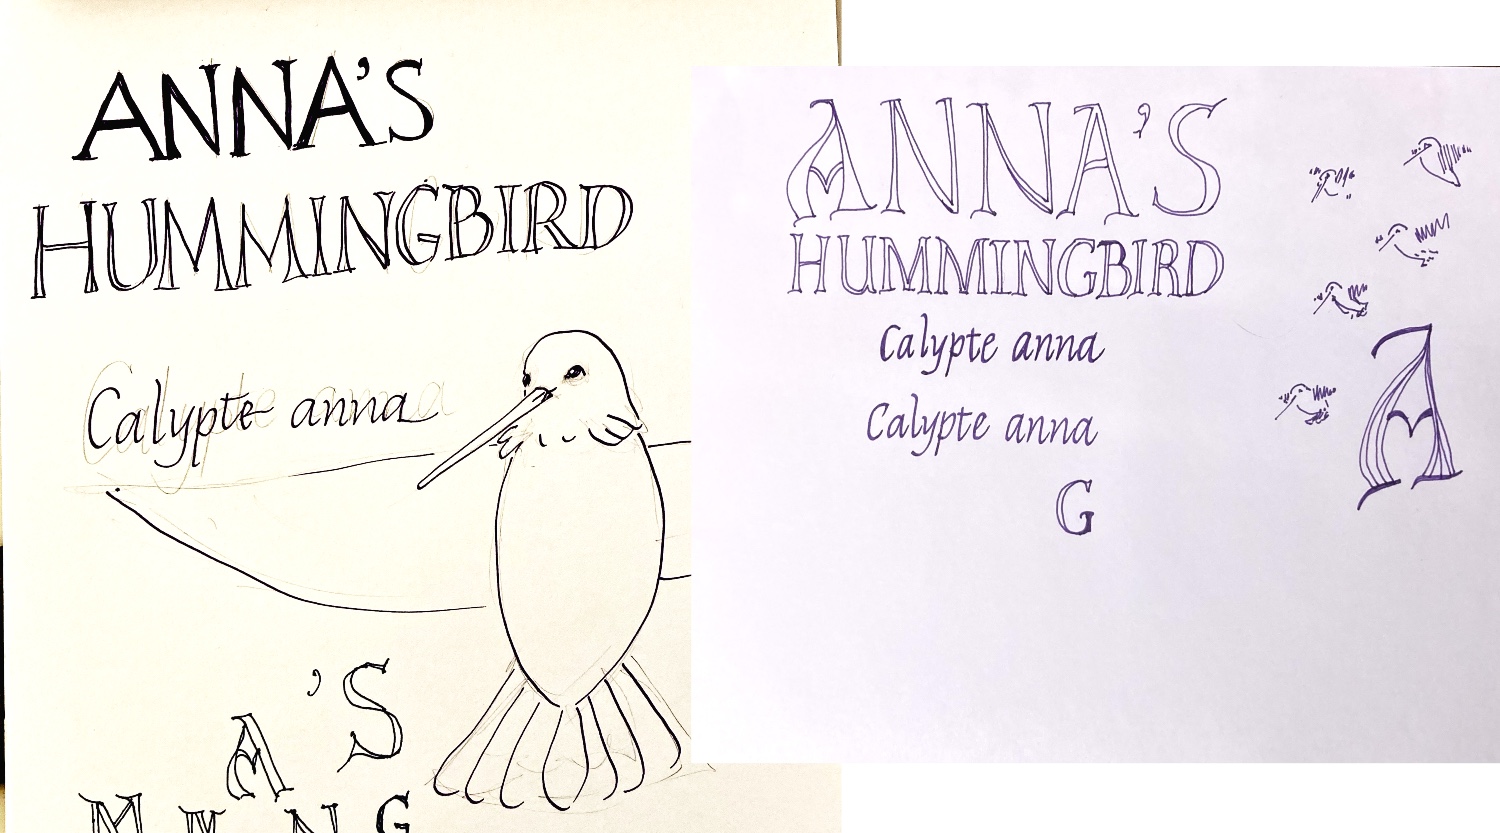 ANNA'S
HUMMINGBIRD
Calypte anna
A'S
M M N G
ANNA'S
HUMMINGBIRD
Calypte anna
Calypte anna
G
A